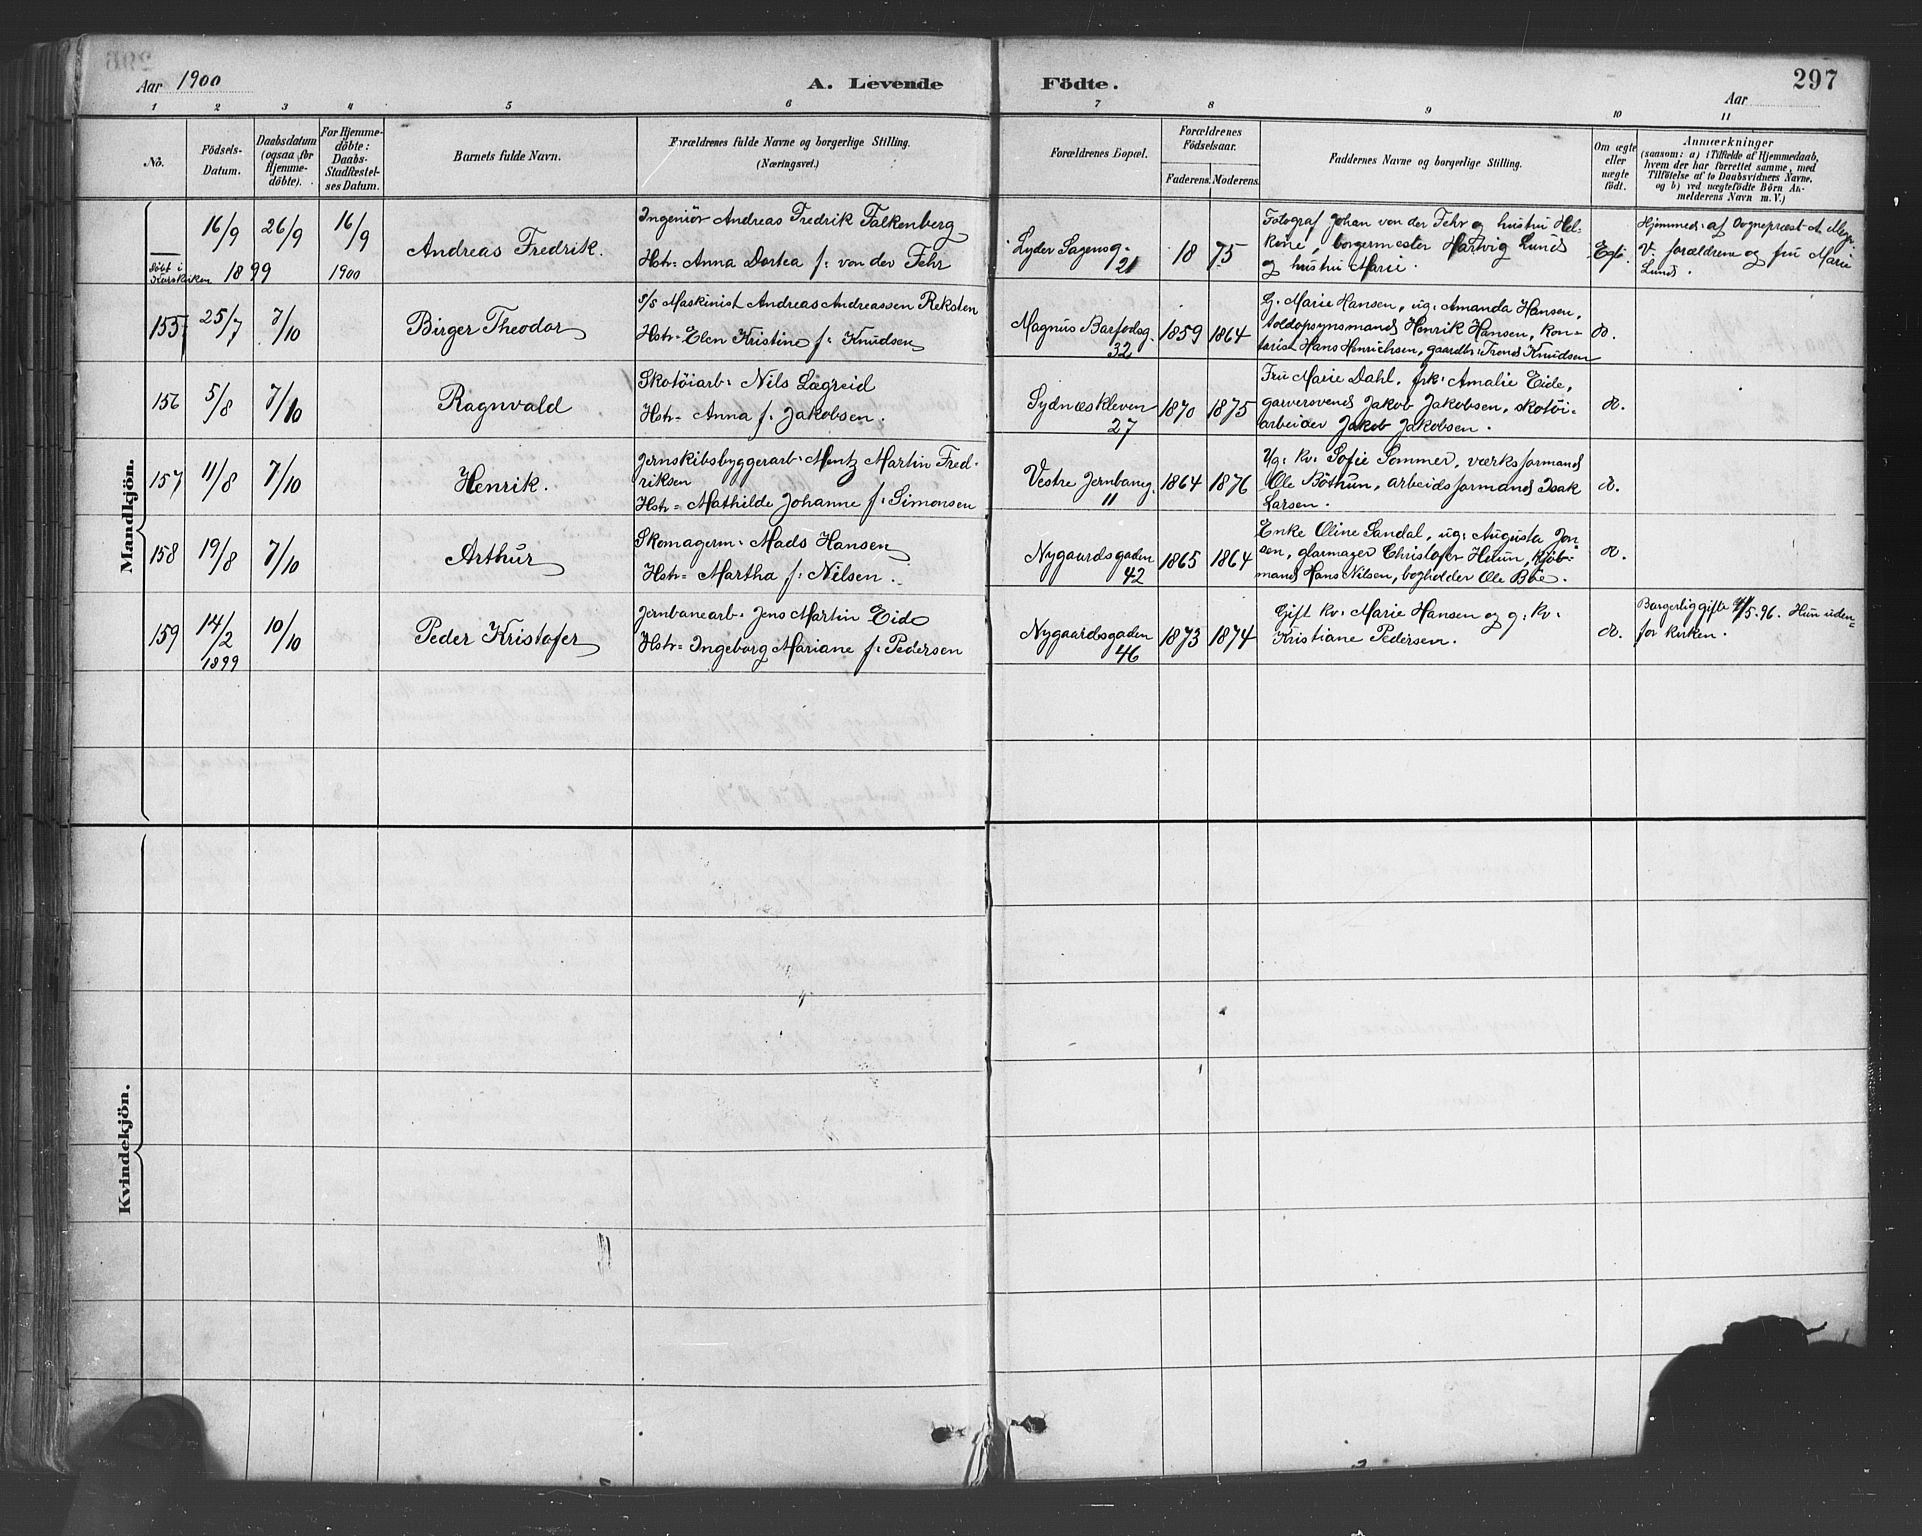 Aar 1900
A. Levende
Födte.
297
Aar
1 2 3 4 5 6 7 8 9 10 11
No.
Födsels-
Datum.
Daabsdatum
(ogsaa for
Hjemme-
döbte).
For Hjemme-
döbte:
Daabs-
Stadfæstel-
ses Datum.
Barnets fulde Navn.
Forældrenes fulde Navne og borgerlige Stilling.
(Næringsvei.)
Forældrenes Bopæl.
Forældrenes
Födselsaar.
Faderens. Moderens.
Faddernes Navne og borgerlige Stilling.
Om ægte
eller
uægte
födt.
Anmærkninger
(saasom: a) i Tilfælde af Hjemmedaab,
hvem der har forrettet samme, med
Tilföielse af to Daabsvidners Navne,
og b) ved uægtefödte Börn An-
melderens Navn m. V.)
Mandkjön.
döbt i
Korskirken
16/9
1899
26/9
16/9
1900
Andreas Fredrik.
Ingeniör Andreas Fredrik Falkenberg
Hstr= Anna Dortea f: von der Fehr
Lyder Sagensg.
21
18 75
Fotograf Johan von der Fehr og hustru Hel-
kone, borgermester Hartvig Lund
og hustru Marie.
Egt.
Hjemmed: af Sognepræst A.
V: forældrene og fru Marie
Lund.
155
25/7
7/10
Birger Theodor
s/s Maskinist Andreas Andreassen Reksten
Hstr= Elen Kristine f: Knudsen
Magnus Barfodsg.
32
1859 1864
G: Marie Hansen, ug: Amanda Hansen,
toldopsynsmand Henrik Hansen, kon-
torist Hans Henrichsen, gaardbr: Trond Knudsen
do.
156
5/8
7/10
Ragnvald
Skotöiarb: Nils Lægreid
Hstr= Anna f: Jakobsen.
Sydnæskleven
27
1870 1875
Fru Marie Dahl, frk: Amalie Eide,
garversvend Jakob Jakobsen, skotöi-
arbeider Jakob Jakobsen.
do.
157
11/8
7/10
Henrik.
Jernskibsbyggerarb: Mentz Martin Fred-
riksen
Hstr= Mathilde Johanne f: Simonsen
Vestre Jernbaneg.
11
1864 1876
Ug: kv: Sofie Sommer, værksformand
Ole Böthun, arbeidsformand Isak
Larsen.
do.
158
19/8
7/10
Arthur
Skomagerm: Mads Hansen
Hstr= Martha f: Nilsen.
Nygaardsgaden
42
1865 1864
Enke Oline Sandal, ug: Augusta Jon-
sen, glarmager Christofer Heiun, kjöb-
mand Hans Nilsen, bogholder Ole Böe.
do.
159
14/2
1899
10/10
Peder Kristofer
Jernbanearb: Jens Martin Eide
Hstr= Ingeborg Mariane f: Pedersen
Nygaardsgaden
46
1873 1874
Gift kv: Marie Hansen og g: kv:
Kristiane Pedersen.
do.
Borgerlig gifte 4/5.96. Hun uden-
for kirken.
Kvindekjön.